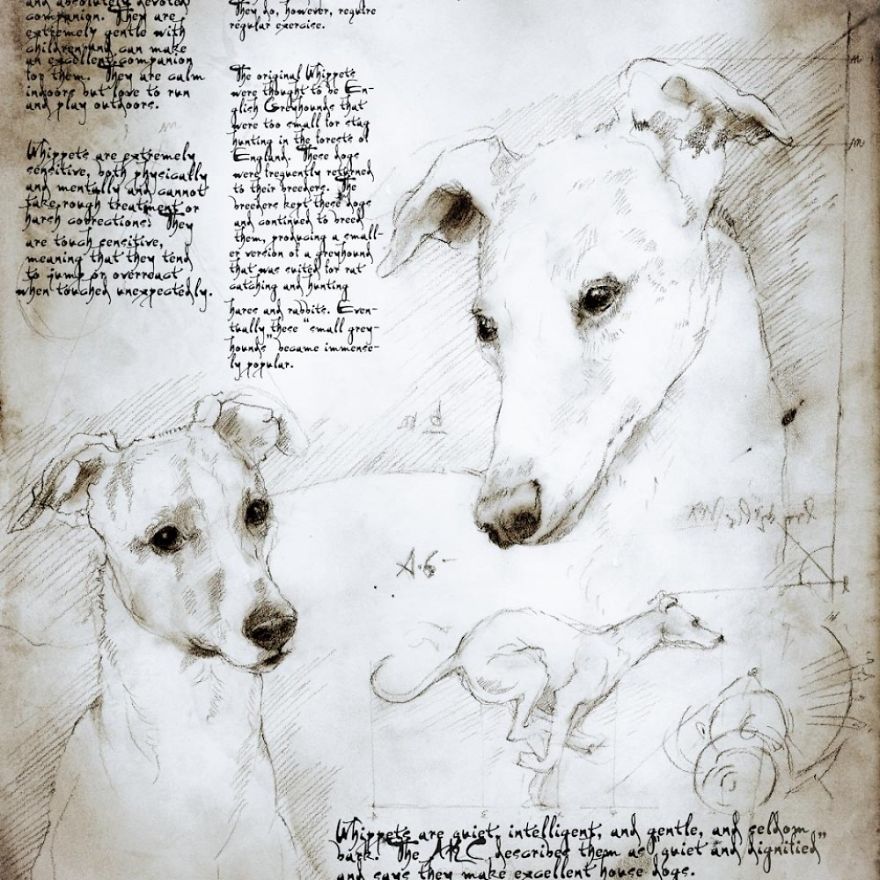 and absolutely devoted
companion. They are
extremely gentle with
children and can make
an excellent companion
for them. They are calm
indoors but love to run
and play outdoors.
Whippets are extremely
sensitive, both physically
and mentally and cannot
take rough treatment or
harsh corrections. They
are touch sensitive,
meaning that they tend
to jump or overreact
when touched unexpectedly.
They do, however, require
regular exercise.
The original Whippets
were thought to be En-
glish Greyhounds that
were too small for stag
hunting in the forests of
England. These dogs
were frequently returned
to their breeders. The
breeders kept these dogs
and continued to breed
them, producing a small-
er version of a greyhound
that was suited for rat
catching and hunting
hares and rabbits. Even-
tually these "small grey-
hounds" became immense-
ly popular.
A.6-
Whippets are quiet, intelligent, and gentle, and seldom
bark. The AKC describes them as "quiet and dignified"
and says they make excellent house dogs.